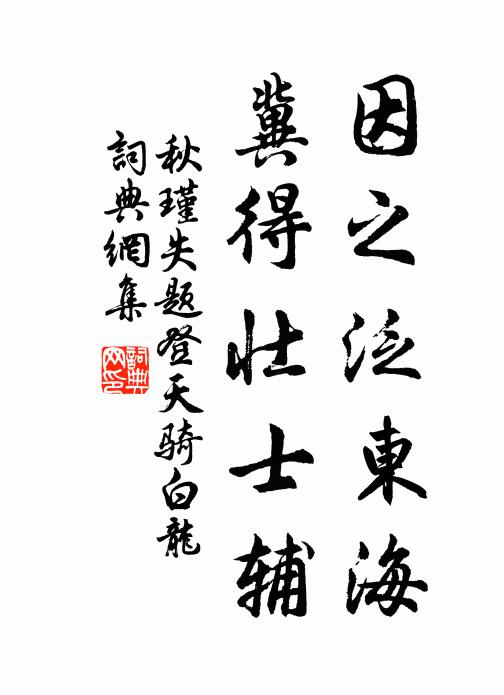 因之泛東海
冀得壯士辅
秋瑾失题登天骑白龍
詞典網集
詞典网印